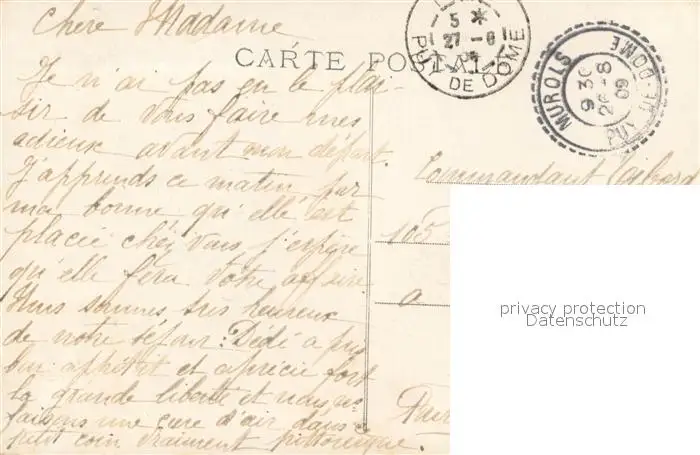 Chère Madame
CARTE POSTALE
Je n'ai pas eu le plai-
sir de vous faire mes
adieux avant mon départ.
J'apprends ce matin par
ma bonne qu'elle est
placée chéz vous j'espère
qu'elle fera votre affaire
Nous sommes très heureux
de notre séjour: Dédé a pris
bon appétit et aprécie fort
la grande liberté et nous
faisons une cure d'air dans ce
petit coin vraiment pittoresque.
5 *
27 - 8
PUY DE DOME
MUROLS
9 30
26 - 8
09
PUY-DE-DOME
Commandant
105
a
privacy protection
Datenschutz